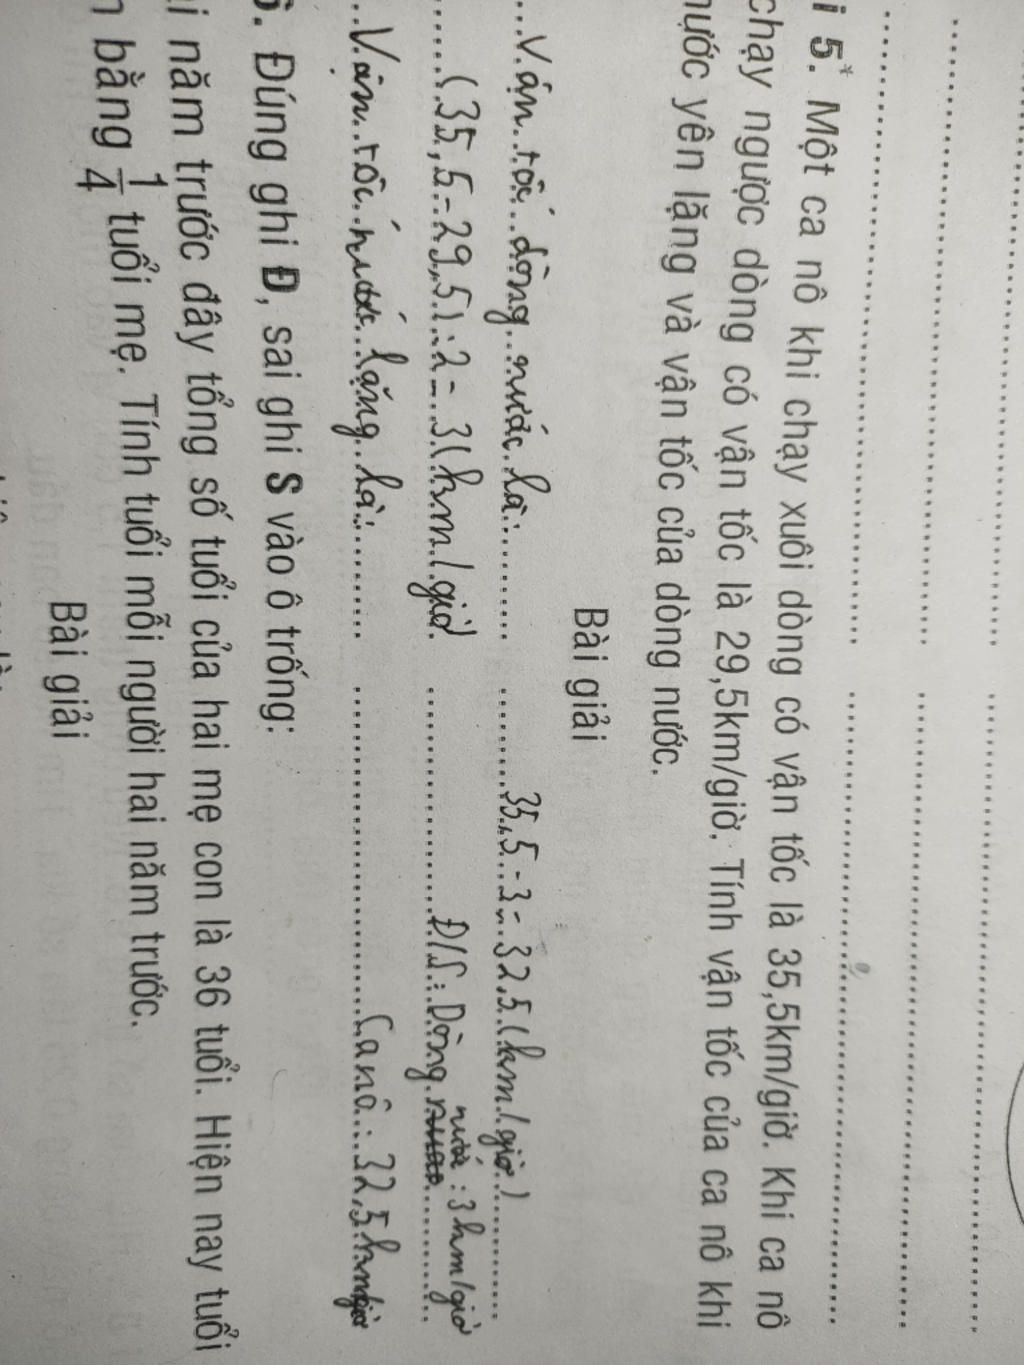 i 5*. Một ca nô khi chạy xuôi dòng có vận tốc là 35,5km/giờ. Khi ca nô
chạy ngược dòng có vận tốc là 29,5km/giờ. Tính vận tốc của ca nô khi
nước yên lặng và vận tốc của dòng nước.
Bài giải
Vận tốc dòng nước là:
(35,5-29,5):2=3(km/giờ
Vận tốc nước lặng là:
35,5-3=32,5(km/giờ)
Đ/S: Dòng nước: 3km/giờ
Canô: 32,5km/giờ
. Đúng ghi Đ, sai ghi S vào ô trống:
i năm trước đây tổng số tuổi của hai mẹ con là 36 tuổi. Hiện nay tuổi
n bằng 1/4 tuổi mẹ. Tính tuổi mỗi người hai năm trước.
Bài giải